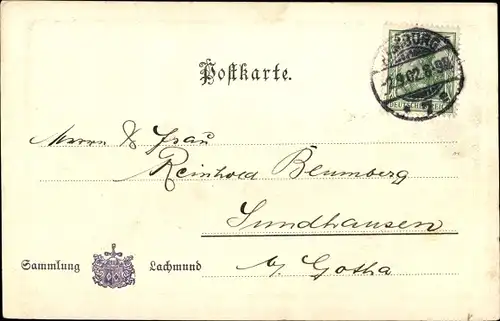 Postkarte.
-2.9.02.8-9N.
DEUTSCHES REICH
Herrn & Frau
Reinhold Blumberg
Sundhausen
b/ Gotha
Sammlung Lachmund